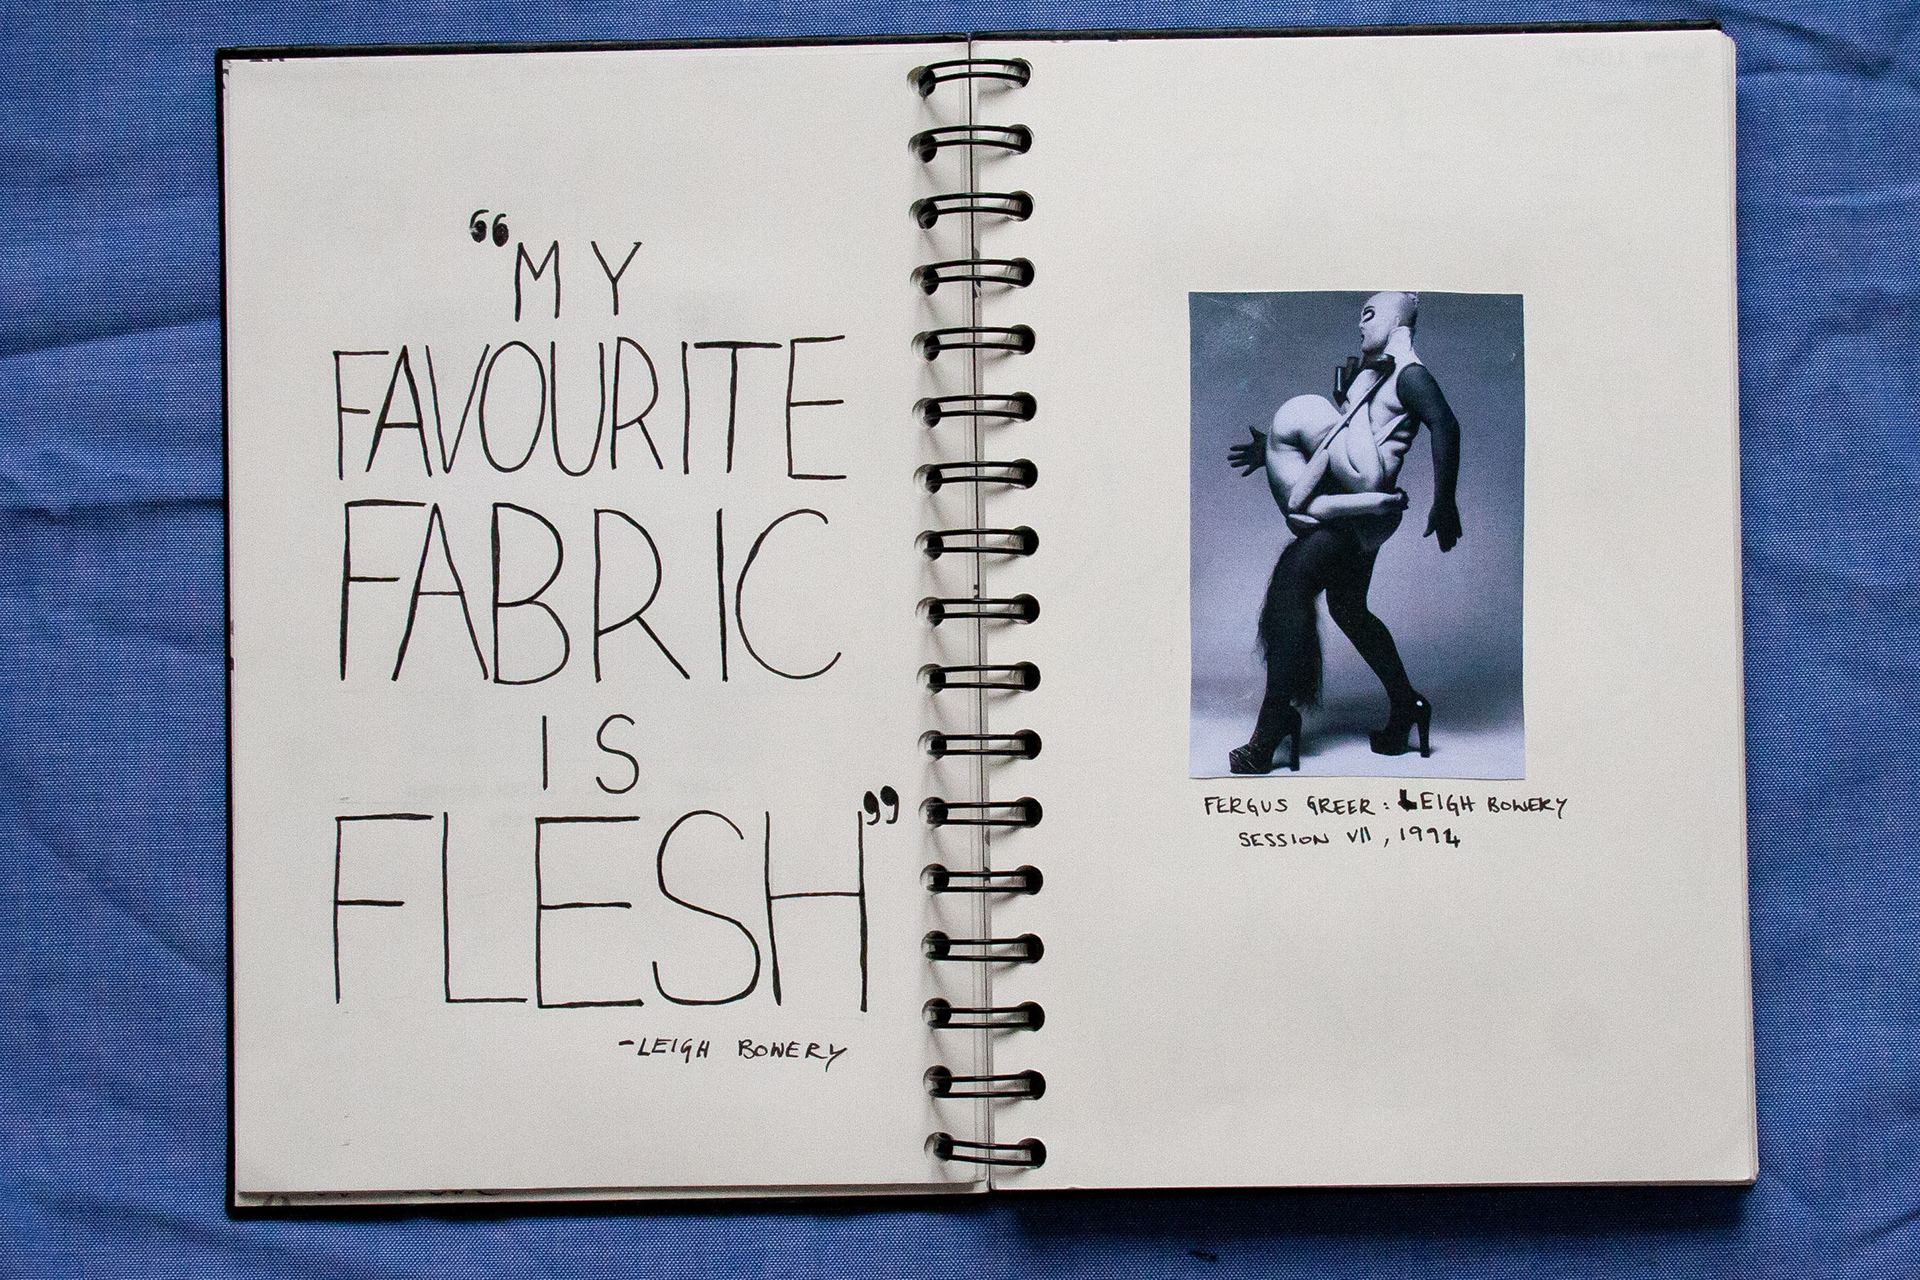 “MY
FAVOURITE
FABRIC
IS
FLESH”
-LEIGH BOWERY
FERGUS GREER: LEIGH BOWERY
SESSION VII, 1994